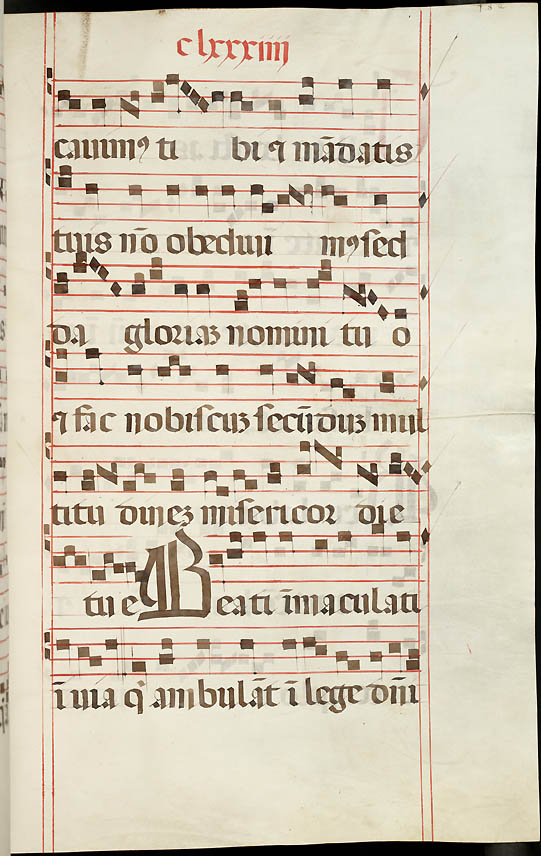 clxxxiiij
cauimꝰ ti bi ⁊ mādatis
tuis nō obediui mꝰ sed
da gloriaꝫ nomini tu o
⁊ fac nobiscuꝫ secūduꝫ mul
titu dineꝫ misericor die
tu e Beati īmaculati
ī uia q̇ ambulāt ī lege dn̄i